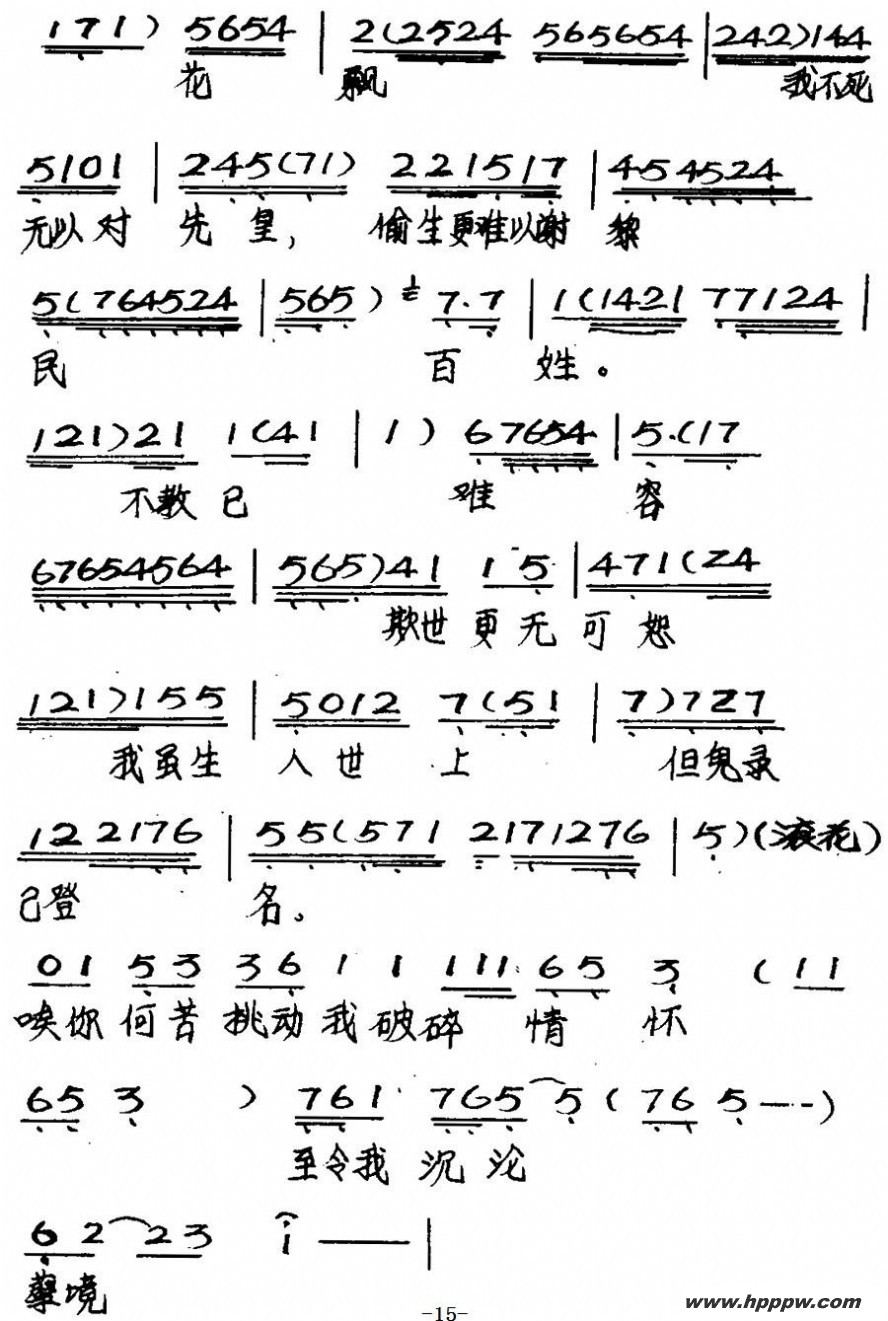 171) 5654 | 2(2524 565654 | 242)144
花 飘 我不死
5101 | 245(71) 221517 | 454524
无以对 先皇， 偷生更难以谢 黎
5(764524 | 565) 7.7 | 1(1421 77124 |
民 百 姓。
121)21 1(41 | 1) 67654 | 5.(17
不教已 难 容
67654564 | 565)41 15 | 471(24
欺世更无可恕
121)155 | 5012 7(51 | 7)727
我虽生 人世 上 但鬼录
122176 | 55(571 2171276 | 5)(滚花)
已登 名。
01 53 36 1 1 111 65 3 (11
唉你何苦挑动我破碎 情 怀
65 3 ) 761 765 5(76 5--·)
至令我 沉沦
62 23 i —— |
孽境
-15-
www.hpppw.com